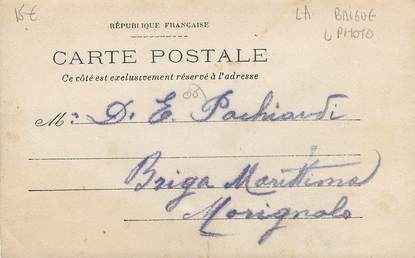 15€
LA BRIGUE
PHOTO
RÉPUBLIQUE FRANÇAISE
CARTE POSTALE
Ce côté est exclusivement réservé à l'adresse
06
M. D. E. Pachiaudi
Briga Marittima
Morignolo